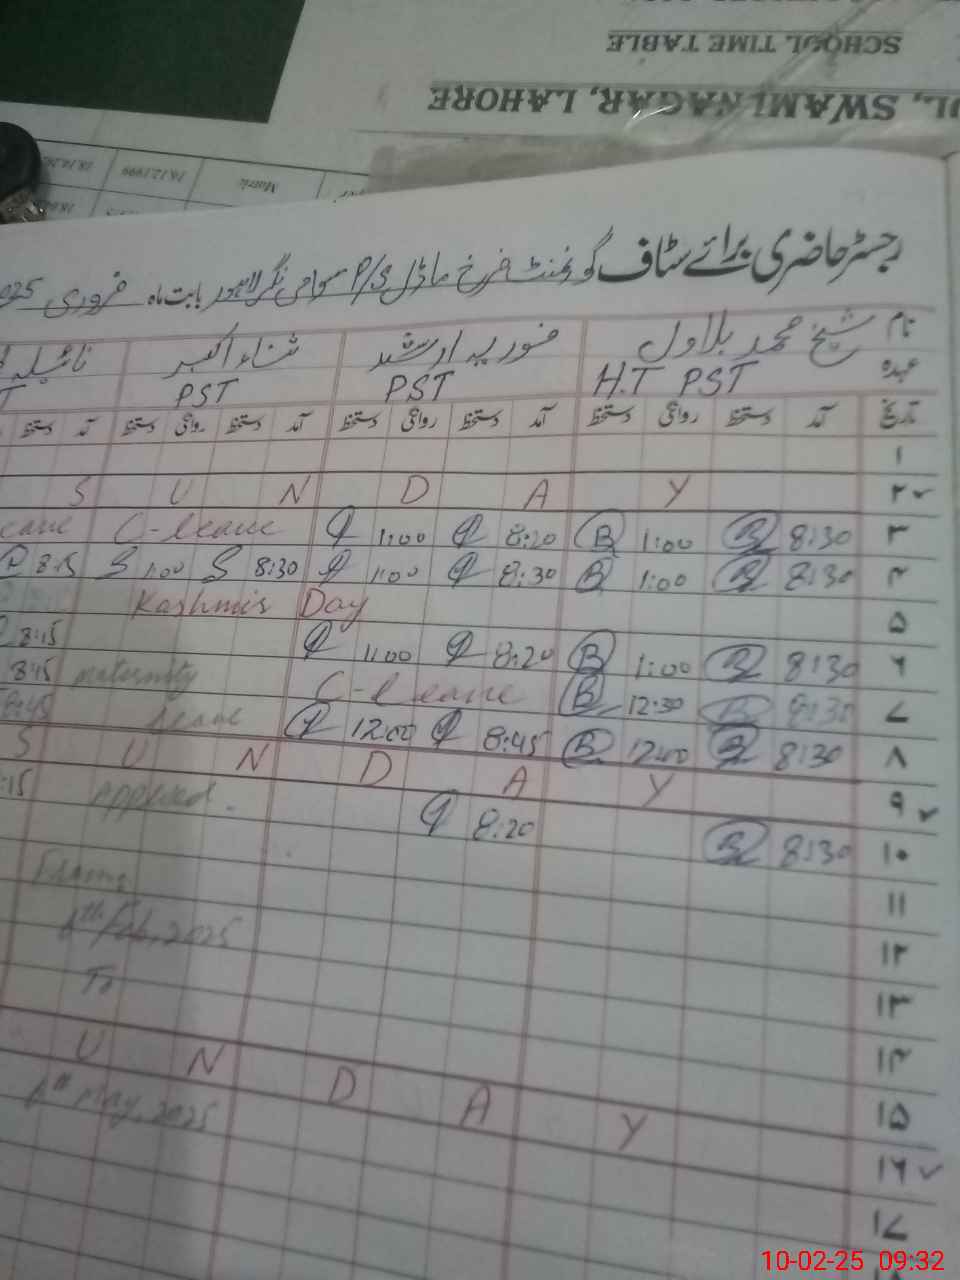 SCHOOL TIME TABLE
SWAMI NAGAR, LAHORE
18.12.1999 Matric
رجسٹر حاضری برائے سٹاف گورنمنٹ فرخ ماڈل P/S سوامی نگر لاہور بابت ماہ فروری 025
نام شیخ محمد بلاول فوزیہ ارشد ثناء اکبر نائلہ
عہدہ H.T PST PST PST T
تاریخ آمد دستخط روانگی دستخط آمد دستخط روانگی دستخط آمد دستخط روانگی دستخط آمد دستخط
۱
۲ S U N D A Y
۳ 8:30 B 1:00 B 8:20 1:00 C-leave eave
۴ 8:30 B 1:00 B 8:30 1:00 8:30 1:00 8:15
۵ Kashmir Day
۶ 8:30 B 1:00 B 8:20 1:00 8:15
۷ 8:30 B 12:30 B C-leave maternity 8:45
۸ 8:30 B 12:00 B 8:45 12:00 leave 8:45
۹ S U N D A Y
۱۰ 8:30 B 8:20 applied. :15
۱۱
۱۲ Feb, 2025
۱۳ To
۱۴
۱۵
۱۶ U N D A Y
۱۷ May, 2025
10-02-25 09:32